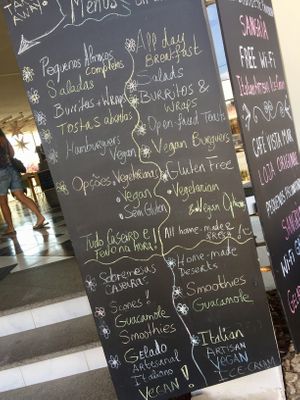 Menus
Pequenos Almoços
completos
Saladas
Burritos + Wraps
Tostas abertas
Hamburguers
Vegan
Opções Vegetarianas
Vegan
Sem Gluten
Tudo Caseiro e
Feito na hora!
Sobremesas
caseiras
Scones!
Guacamole
Smoothies
Gelado
Artesanal
Italiano
Vegan!
All day
Breakfast
Salads
Burritos &
Wraps
Open-faced Toasts
Vegan Burguers
Gluten Free
Vegetarian
& Vegan
All home-made &
fresh
Home-made
Deserts
Smoothies
Guacamole
Italian
Artisan
Vegan
Ice-cream
Sangria
Free Wi-Fi
Café Vista Mar
Loja
Pequenos